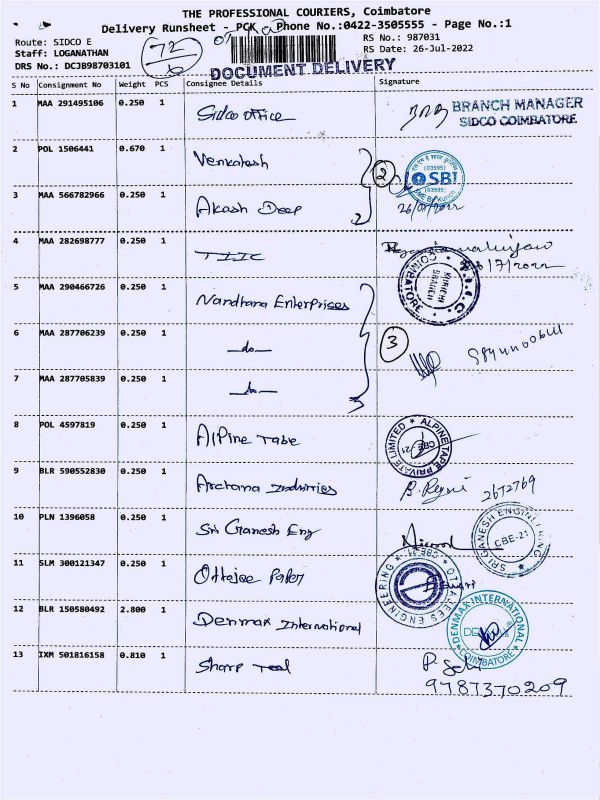 THE PROFESSIONAL COURIERS, Coimbatore
Delivery Runsheet - PCK Phone No.:0422-3505555 - Page No.:1
Route: SIDCO E RS No.: 987031
Staff: LOGANATHAN RS Date: 26-Jul-2022
DRS No.: DCJB98703101
72
DOCUMENT DELIVERY
S No Consignment No Weight PCS Consignee Details Signature
1 MAA 291495106 0.250 1 Sidco office BRANCH MANAGER
SIDCO COIMBATORE
2 POL 1506441 0.670 1 Venkatesh 2 SBI
(03595)
3 MAA 566782966 0.250 1 Akash Deep 2 26/07/2022
4 MAA 282698777 0.250 1 TIIC /7/2022
T.I.I.C. KURICHI BRANCH COIMBATORE
5 MAA 290466726 0.250 1 Nandhana Enterprises
6 MAA 287706239 0.250 1 -do- 3
7 MAA 287705839 0.250 1 -do- 3
8 POL 4597819 0.250 1 Alpine Tape ALPINE TAPE PRIVATE LIMITED CBE-21
9 BLR 590552830 0.250 1 Archana Industries 2672769
10 PLN 1396058 0.250 1 Sri Ganesh Eng SRI GANESH ENGINEERING CBE-21
11 SLM 300121347 0.250 1 OTTAJEES ENGINEERING CBE-21
12 BLR 150580492 2.800 1 Denmax International DENMAX INTERNATIONAL COIMBATORE
13 IXM 501816158 0.810 1 Sharp Tool
9787370209